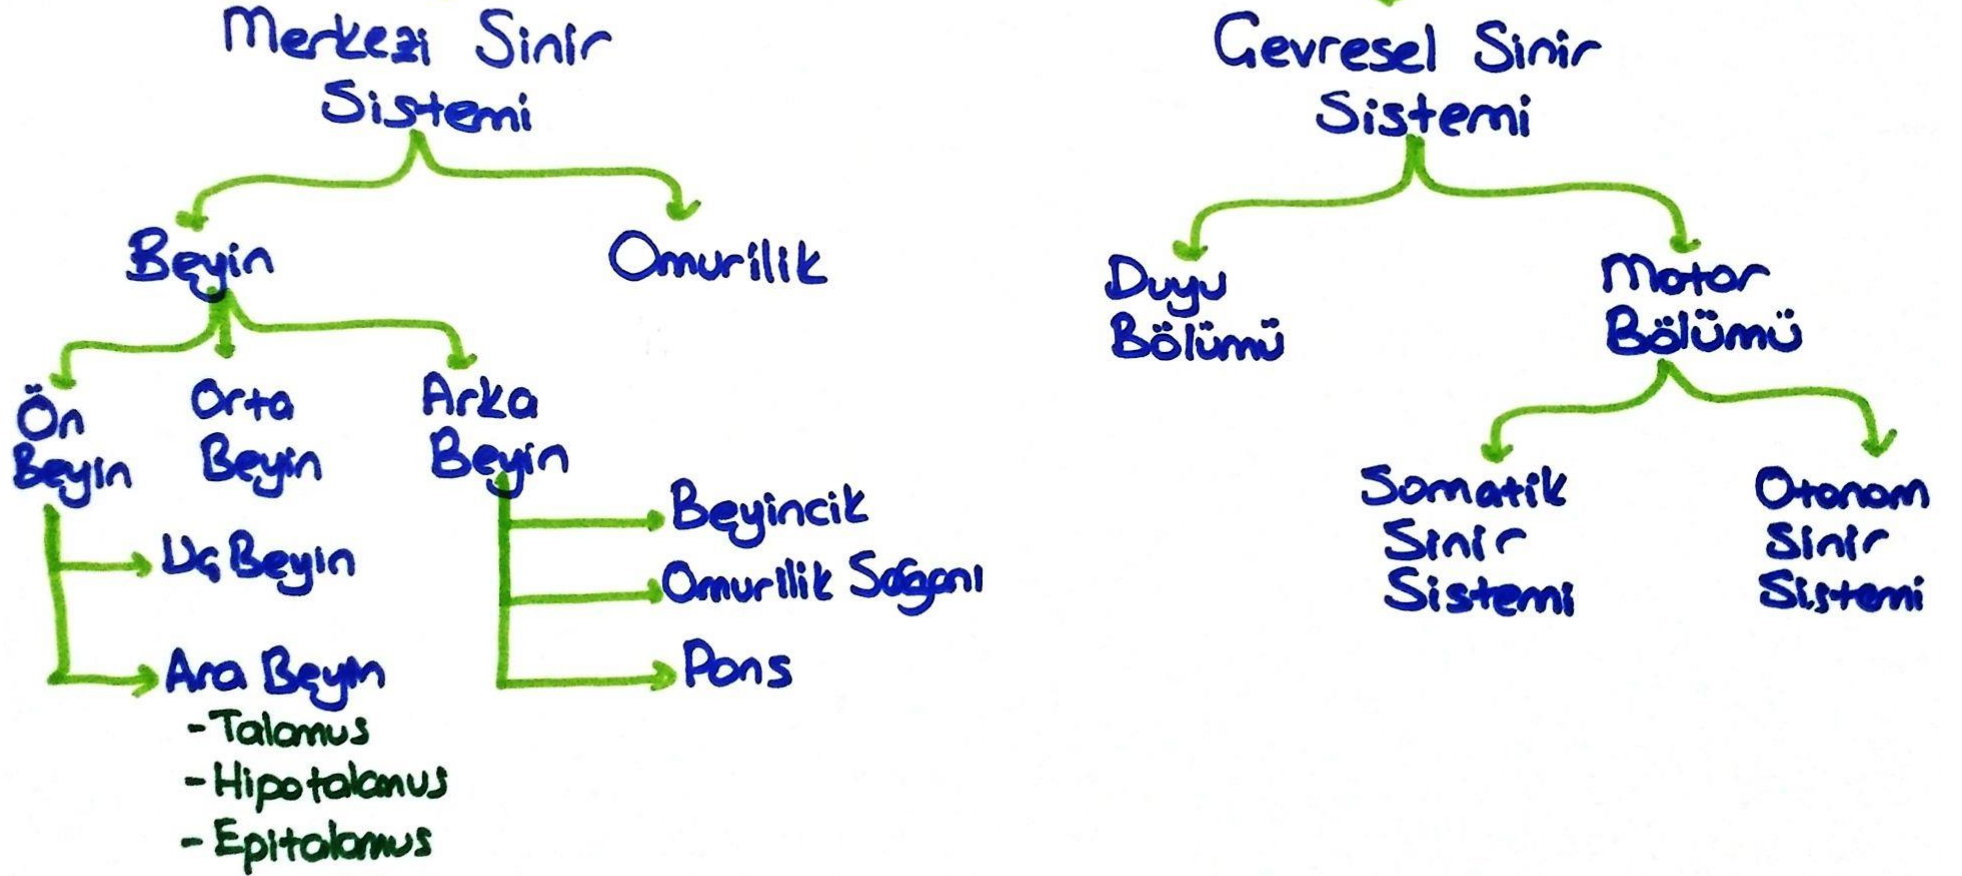 Merkezi Sinir
Sistemi
Beyin
Omurilik
Ön
Beyin
Orta
Beyin
Arka
Beyin
Uç Beyin
Ara Beyin
- Talamus
- Hipotalamus
- Epitalamus
Beyincik
Omurilik Soğanı
Pons
Çevresel Sinir
Sistemi
Duyu
Bölümü
Motor
Bölümü
Somatik
Sinir
Sistemi
Otonom
Sinir
Sistemi